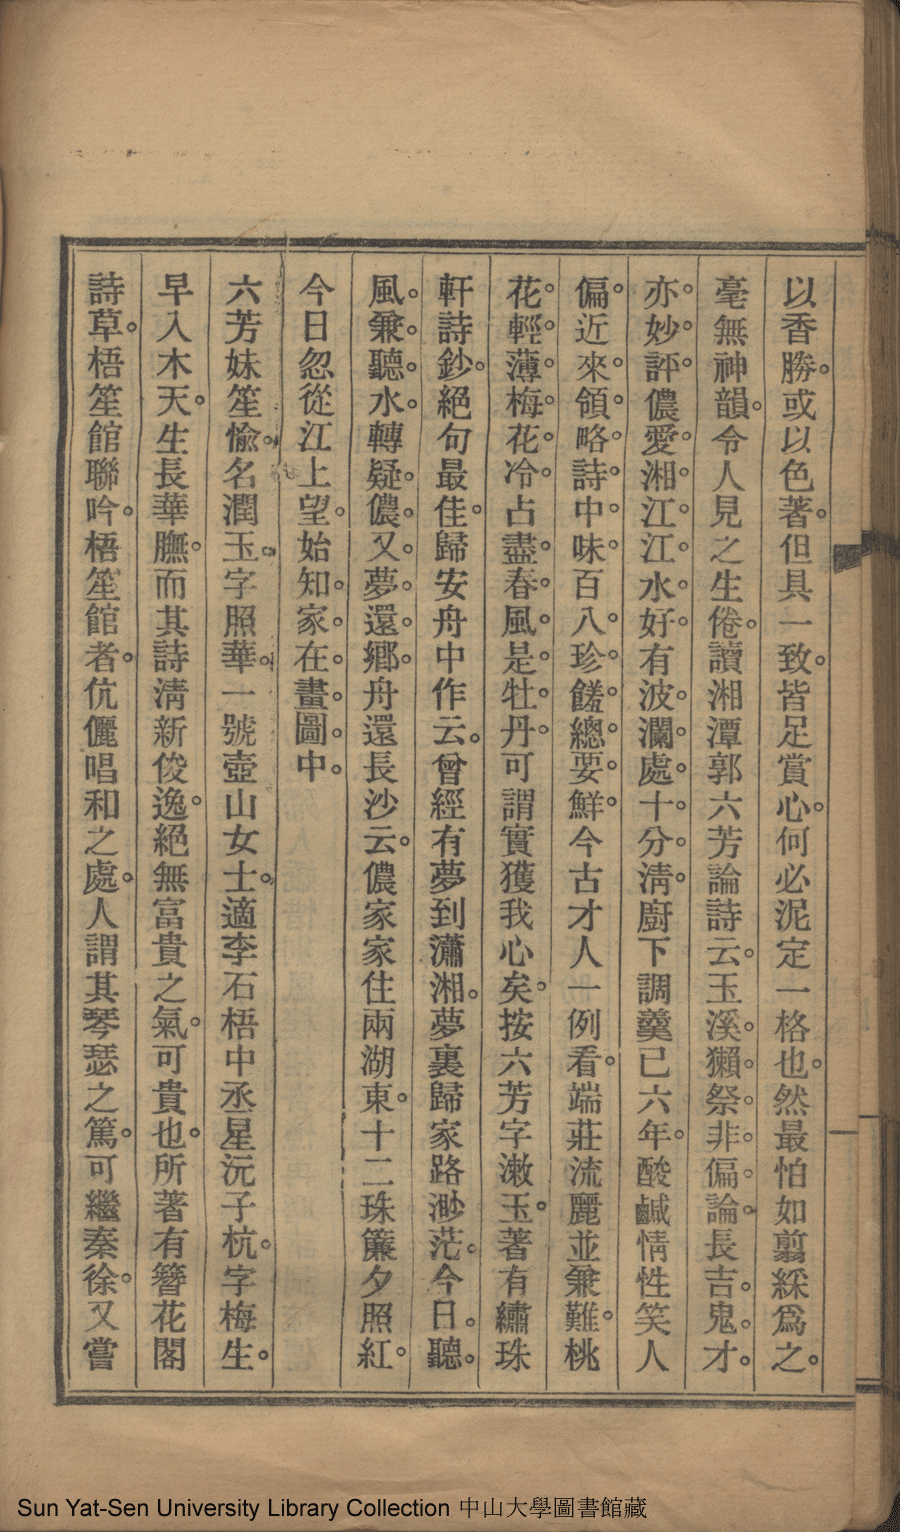 以香勝。或以色著。但具一致。皆足賞心。何必泥定一格也。然最怕如翦綵爲之。
毫無神韻。令人見之生倦。讀湘潭郭六芳論詩云。玉溪。獺。祭。非。偏。論。長吉。鬼。才。
亦。妙。評。儂愛。湘。江。江。水。好。有波。瀾。處。十。分。淸。廚下調羹已六年。酸鹹情性笑人
偏。近來。領。略。詩。中。味。百八。珍。饈。總。要。鮮。今古才人一例看。端莊流麗並兼難。桃
花。輕。薄。梅。花。冷。占盡。春。風。是。牡。丹。可謂實獲我心矣。按六芳字漱玉。著有繡珠
軒詩鈔。絕句最佳。歸安舟中作云。曾經有夢到瀟湘。夢裏歸家路渺茫。今日。聽。
風。兼。聽。水。轉疑。儂。又。夢。還。鄕。舟還長沙云。儂家家住兩湖東。十二珠簾夕照紅。
今日忽從江上望。始知。家。在。畫。圖。中。
六芳妹笙愉。名潤玉。字照華。一號壺山女士。適李石梧中丞星沅子杭。字梅生。
早入木天。生長華膴。而其詩淸新俊逸。絕無富貴之氣。可貴也。所著有簪花閣
詩草。梧笙館聯吟。梧笙館者。伉儷唱和之處。人謂其琴瑟之篤。可繼秦徐。又嘗
Sun Yat-Sen University Library Collection 中山大學圖書館藏